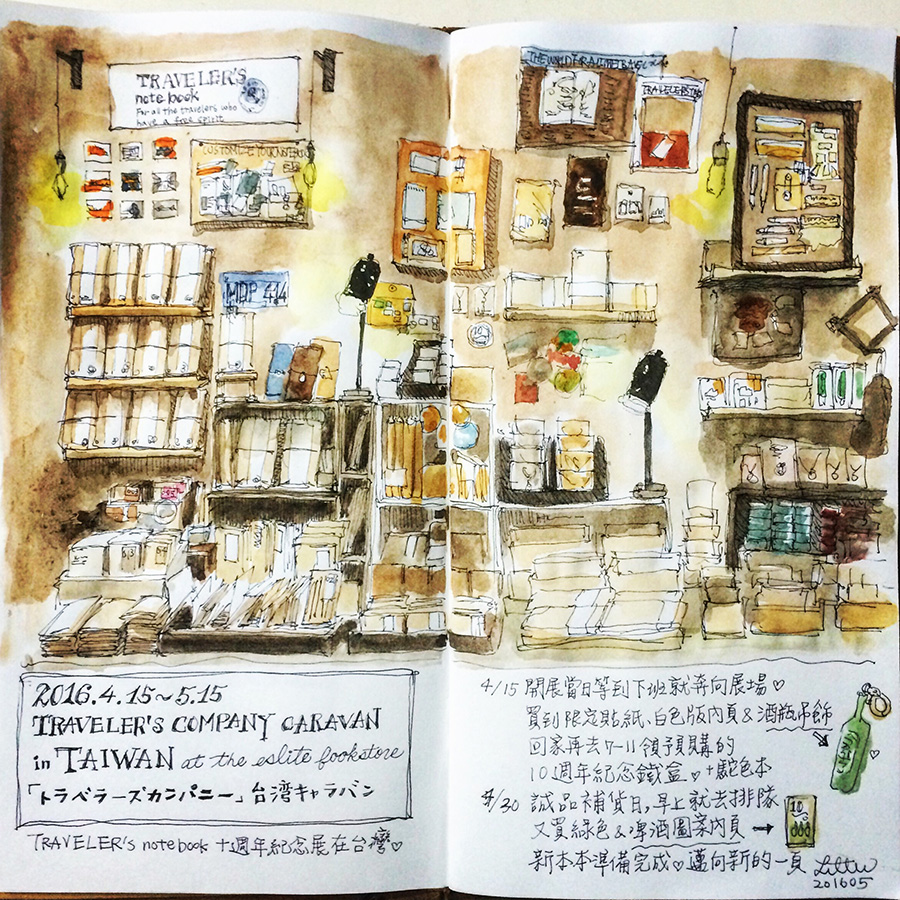 TRAVELER'S
note book
For all the travelers who
have a free spirit
MDP 414
TRAVELER'S
2016.4.15~5.15
TRAVELER'S COMPANY CARAVAN
in TAIWAN at the eslite bookstore
「トラベラーズカンパニー」台湾キャラバン
TRAVELER's notebook 十週年紀念展在台灣♡
4/15 開展當日等到下班就奔向展場♡
買到限定貼紙、白色版內頁&酒瓶吊飾
回家再去7-11領預購的
10週年紀念鐵盒♡+駝色本
4/30 誠品補貨日,早上就去排隊
又買綠色&啤酒圖案內頁→
10
新本本準備完成♡邁向新的一頁
201605